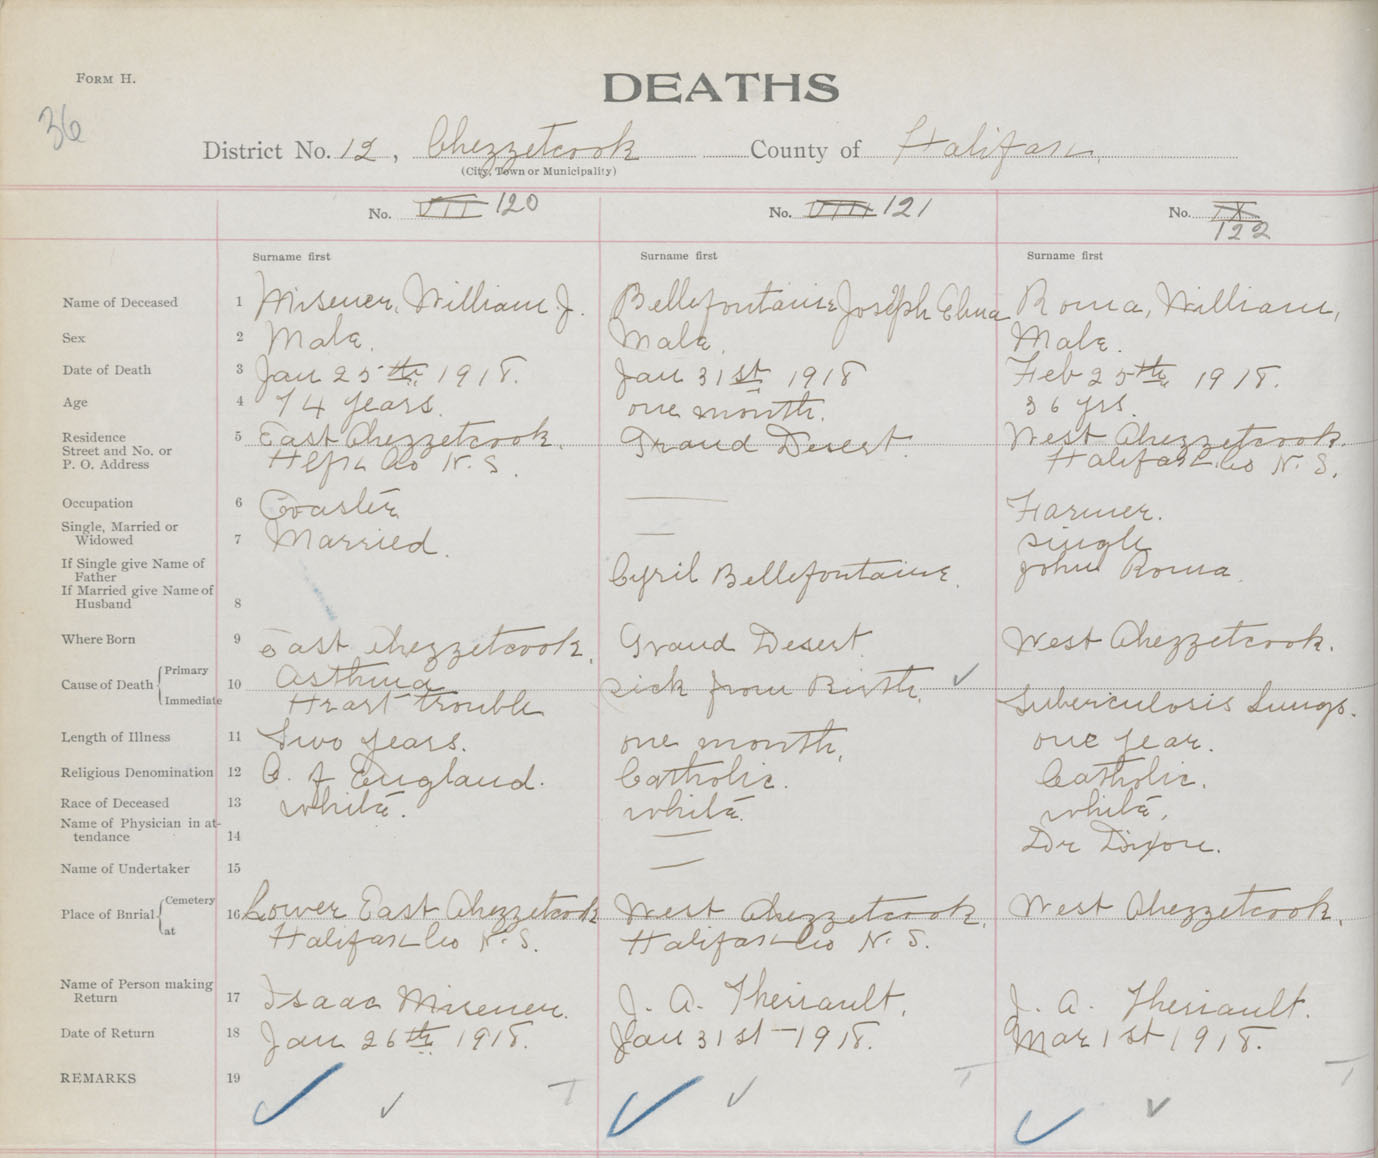 FORM H.
DEATHS
36
District No. 12, Chezzetcook County of Halifax.
(City, Town or Municipality)
No. VII 120 No. VIII 121 No. IX 122
Surname first Surname first Surname first
Name of Deceased 1 Misener, William J. Bellefontaine Joseph Roma, William,
Sex 2 Male. Male. Male.
Date of Death 3 Jan 25th 1918. Jan 31st 1918 Feb 25th 1918.
Age 4 74 years. one month. 36 yrs.
Residence 5 East Chezzetcook. Grand Desert. West Chezzetcook.
Street and No. or
P. O. Address Hlfx Co N.S. Halifax Co N.S.
Occupation 6 Coaster Farmer.
Single, Married or
Widowed 7 Married. single
If Single give Name of
Father Cyril Bellefontaine. John Roma
If Married give Name of
Husband 8
Where Born 9 East Chezzetcook. Grand Desert West Chezzetcook.
Cause of Death Primary 10 Asthma sick from Birth.
Immediate Heart trouble Tuberculosis Lungs.
Length of Illness 11 Two years. one month. one year.
Religious Denomination 12 C. of England. Catholic. Catholic.
Race of Deceased 13 white. white. white.
Name of Physician in at-
tendance 14 Dr Dixon.
Name of Undertaker 15
Place of Burial Cemetery 16 Lower East Chezzetcook West Chezzetcook, West Chezzetcook.
at Halifax Co N.S. Halifax Co N.S.
Name of Person making
Return 17 Isaac Misener. J. A. Theriault. J. A. Theriault.
Date of Return 18 Jan 26th 1918. Jan 31st - 1918. Mar 1st 1918.
REMARKS 19
T T T